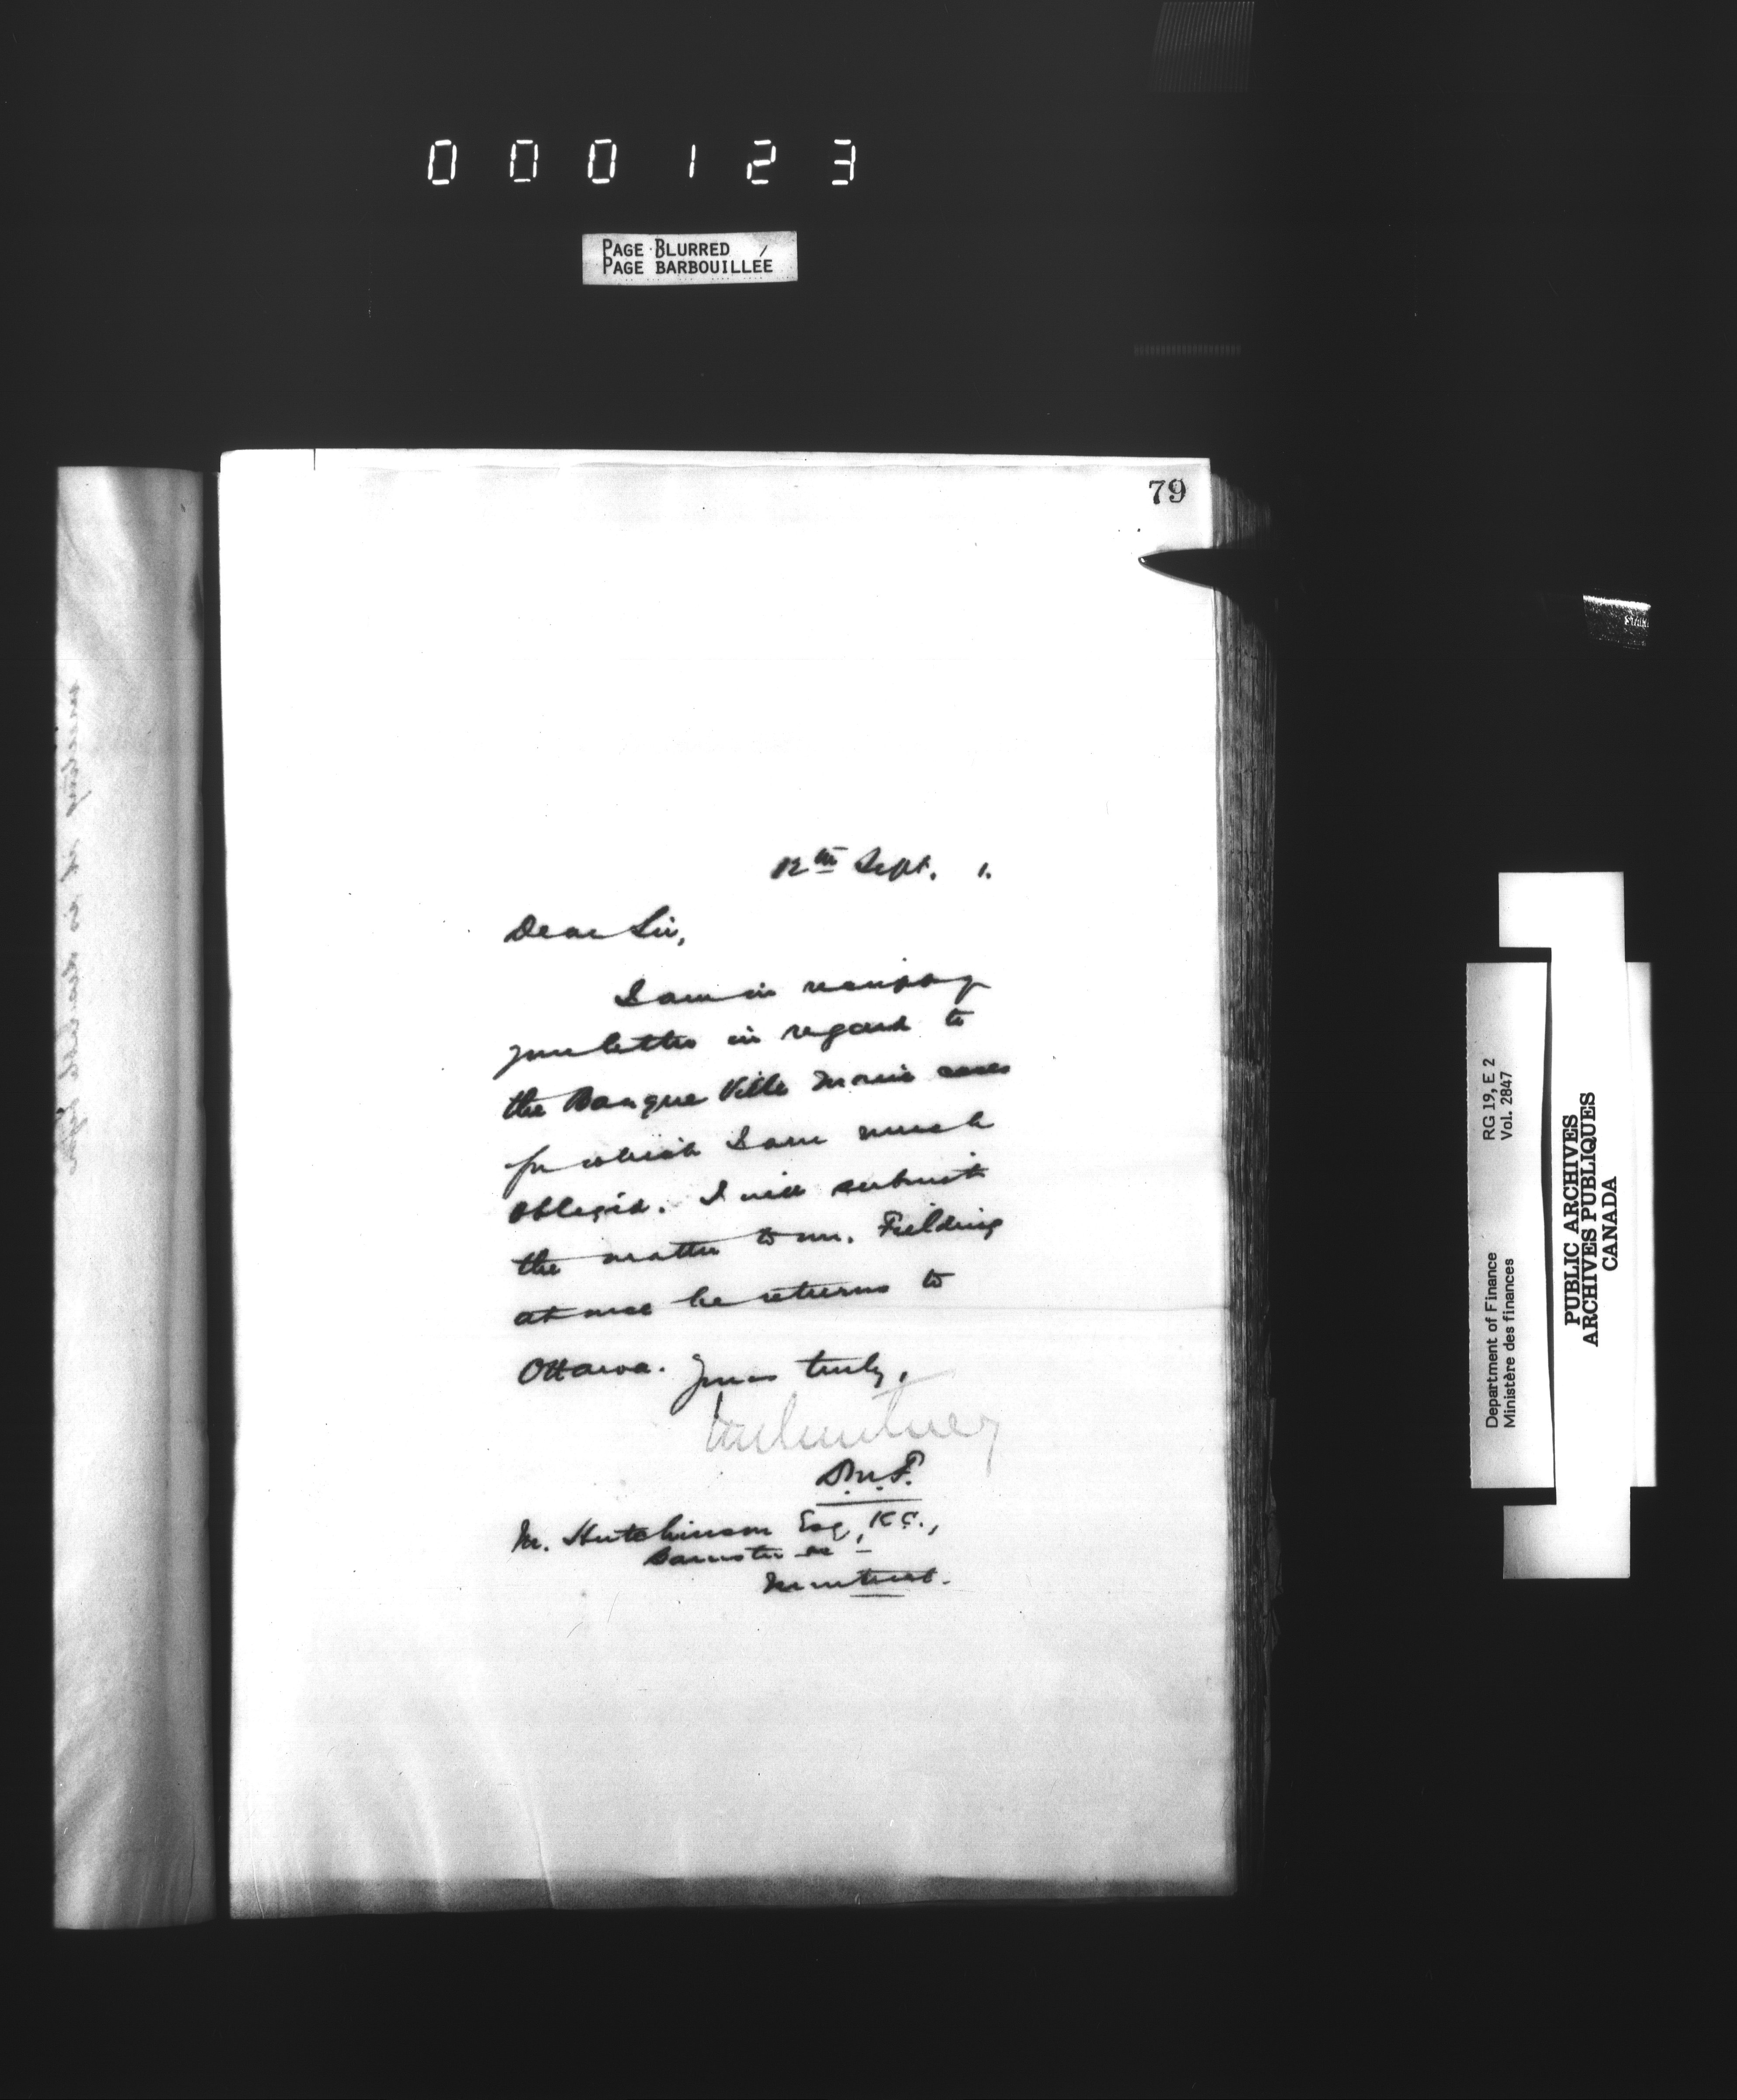 000123
PAGE BLURRED
PAGE BARBOUILLÉE
79
12th Sept. 1.
Dear Sir,
I am in receipt of
your letter in regard to
the Banque Ville Marie cases
for which I am much
obliged. I will submit
the matter to Mr. Fielding
at once he returns to
Ottawa. Yours truly,
D.M.F.
M. Hutchinson Esq, K.C.,
Barrister &c
Montreal.
RG 19, E 2
Vol. 2847
Department of Finance
Ministère des finances
PUBLIC ARCHIVES
ARCHIVES PUBLIQUES
CANADA